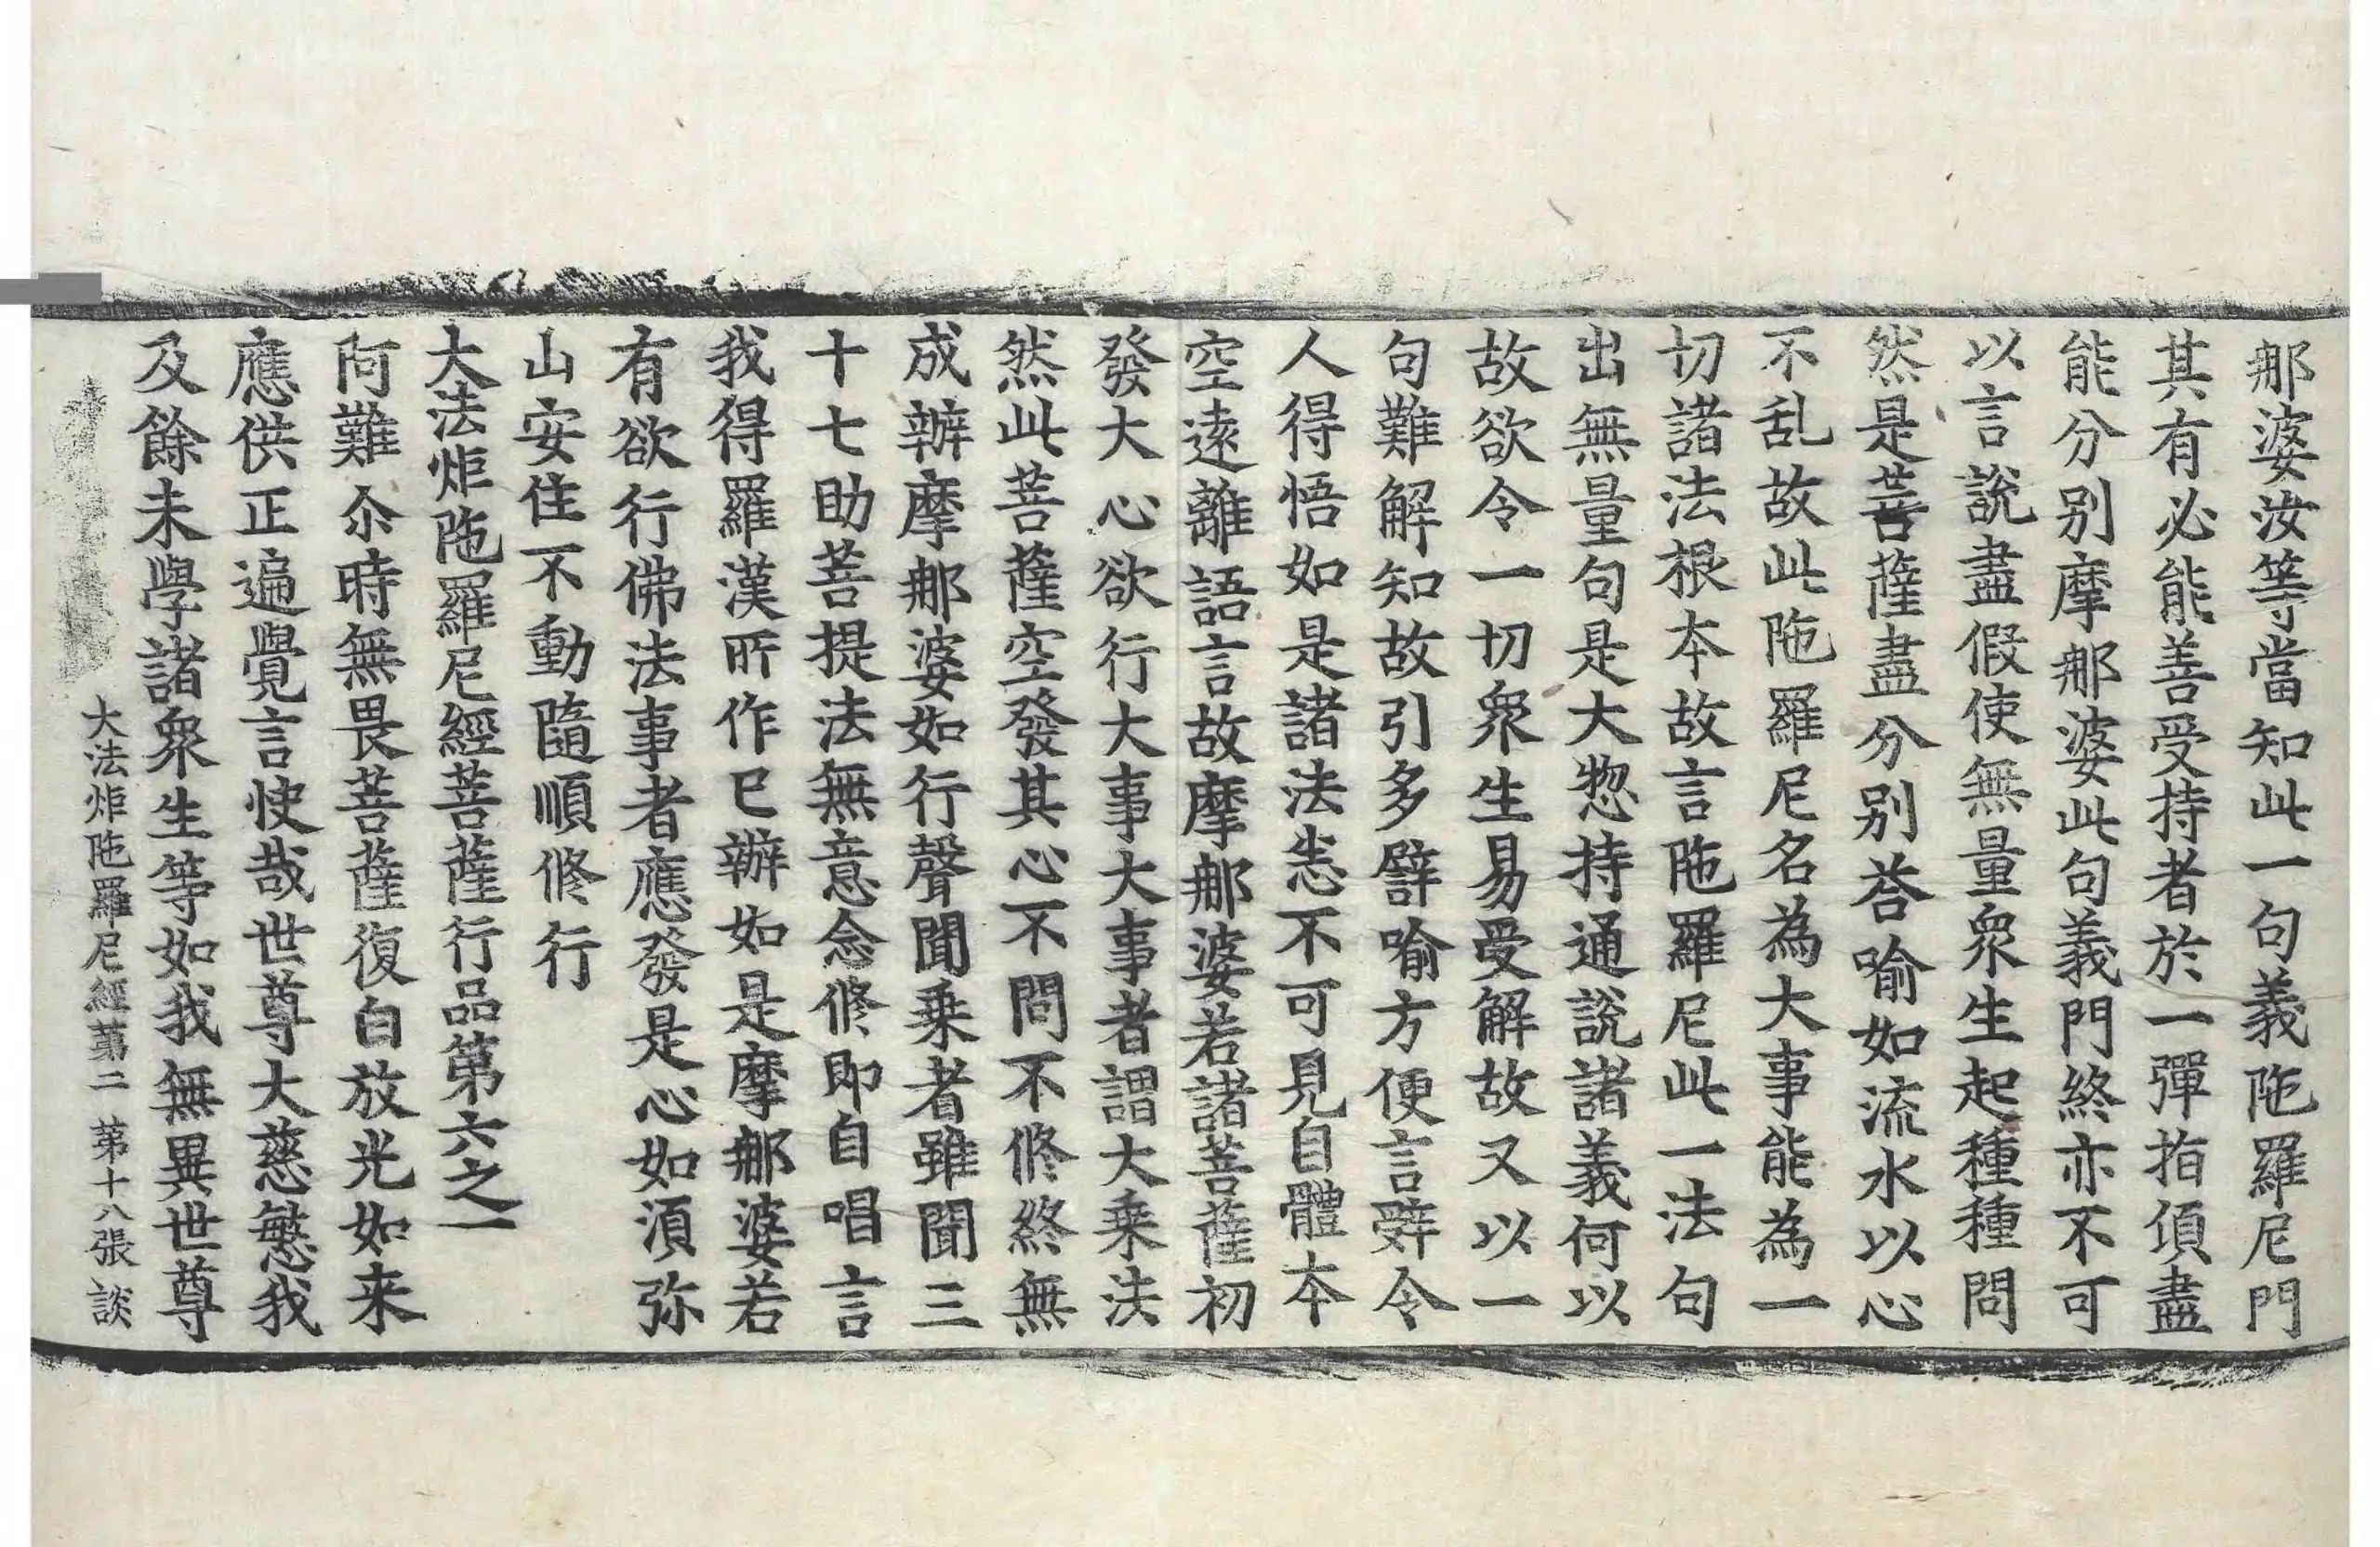 那婆汝等當知此一句義陁羅尼門
其有必能善受持者於一彈指頃盡
能分别摩那婆此句義門終亦不可
以言說盡假使無量衆生起種種問
然是菩薩盡分别荅喻如流水以心
不乱故此陁羅尼名為大事能為一
切諸法根本故言陁羅尼此一法句
出無量句是大惣持通說諸義何以
故欲令一切衆生易受解故又以一
句難解知故引多譬喻方便言辭令
人得悟如是諸法恙不可見自體本
空遠離語言故摩那婆若諸菩薩初
發大心欲行大事大事者謂大乗法
然此菩薩空發其心不問不修終無
成辦摩那婆如行聲聞乗者雖聞三
十七助菩提法無意念修即自唱言
我得羅漢所作已辦如是摩那婆若
有欲行佛法事者應發是心如湏弥
山安住不動隨順修行
大法炬陁羅尼經菩薩行品第六之一
阿難尒時無畏菩薩復白放光如来
應供正遍覺言快哉世尊大慈愍我
及餘未學諸衆生等如我無異世尊
大法炬陁羅尼經苐二 苐十八張 談